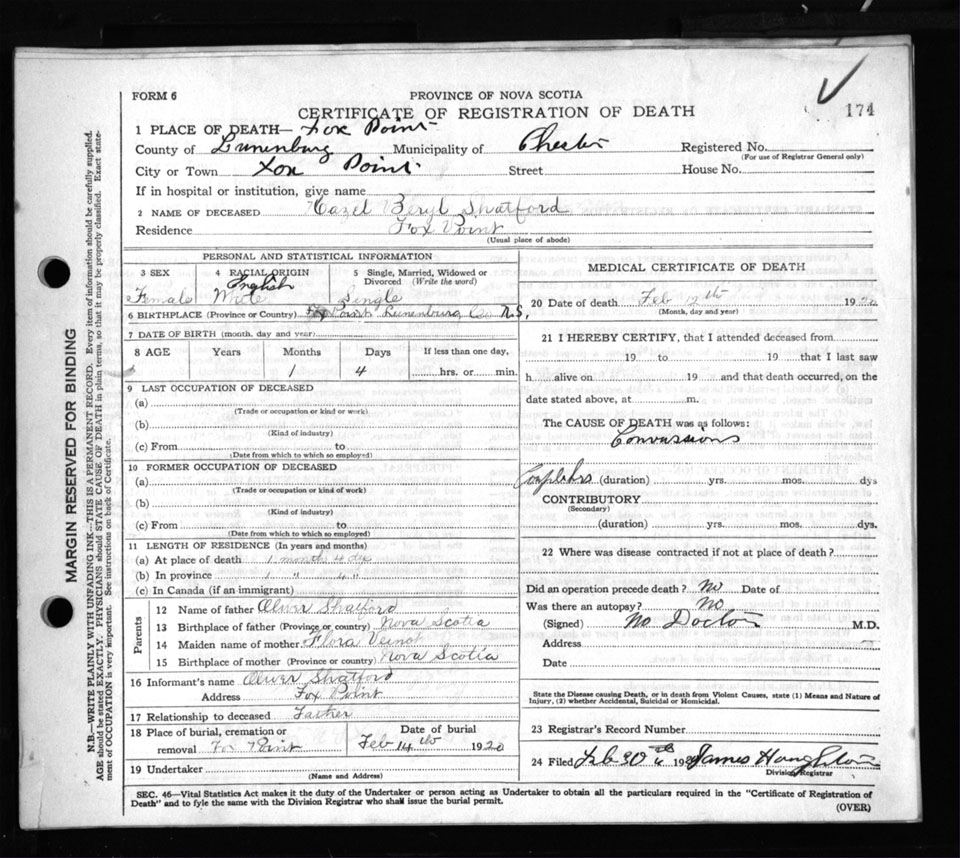 FORM 6
PROVINCE OF NOVA SCOTIA
CERTIFICATE OF REGISTRATION OF DEATH
174
1 PLACE OF DEATH— Fox Point
County of Lunenburg Municipality of Chester Registered No.
(For use of Registrar General only)
City or Town Fox Point Street House No.
If in hospital or institution, give name
2 NAME OF DECEASED Hazel Beryl Shatford
Residence Fox Point
(Usual place of abode)
PERSONAL AND STATISTICAL INFORMATION
3 SEX 4 RACIAL ORIGIN 5 Single, Married, Widowed or
Divorced (Write the word)
English
Female White Single
6 BIRTHPLACE (Province or Country) Fox Point Lunenburg Co N.S.
7 DATE OF BIRTH (month, day and year)
8 AGE Years Months Days If less than one day,
1 4 hrs. or min.
9 LAST OCCUPATION OF DECEASED
(a)
(Trade or occupation or kind or work)
(b)
(Kind of industry)
(c) From to
(Date from which to which so employed)
10 FORMER OCCUPATION OF DECEASED
(a)
(Trade or occupation or kind of work)
(b)
(Kind of industry)
(c) From to
(Date from which to which so employed)
11 LENGTH OF RESIDENCE (In years and months)
(a) At place of death 1 month 4 dys
(b) In province 1 " 4 "
(c) In Canada (if an immigrant)
Parents
12 Name of father Oliver Shatford
13 Birthplace of father (Province or country) Nova Scotia
14 Maiden name of mother Flora Veinot
15 Birthplace of mother (Province or country) Nova Scotia
16 Informant's name Oliver Shatford
Address Fox Point
17 Relationship to deceased Father
18 Place of burial, cremation or Date of burial
removal Fox Point Feb 14th 1920
19 Undertaker
(Name and Address)
MEDICAL CERTIFICATE OF DEATH
20 Date of death Feb 12th 1920
(Month, day and year)
21 I HEREBY CERTIFY, that I attended deceased from
19 to 19 that I last saw
h alive on 19 and that death occurred, on the
date stated above, at m.
The CAUSE OF DEATH was as follows:
Convussions
(duration) yrs. mos. dys
CONTRIBUTORY
(Secondary)
(duration) yrs. mos. dys.
22 Where was disease contracted if not at place of death?
Did an operation precede death? No Date of
Was there an autopsy? No
(Signed) No Doctor M.D.
Address
Date
State the Disease causing Death, or in death from Violent Causes, state (1) Means and Nature of
Injury, (2) whether Accidental, Suicidal or Homicidal.
23 Registrar's Record Number
24 Filed Feb 30th 19 James Haughton
Division Registrar
SEC. 46—Vital Statistics Act makes it the duty of the Undertaker or person acting as Undertaker to obtain all the particulars required in the "Certificate of Registration of
Death" and to fyle the same with the Division Registrar who shall issue the burial permit.
(OVER)
MARGIN RESERVED FOR BINDING
N.B.—WRITE PLAINLY WITH UNFADING INK—THIS IS A PERMANENT RECORD. Every item of information should be carefully supplied.
AGE should be stated EXACTLY. PHYSICIANS should STATE CAUSE OF DEATH in plain terms, so that it may be properly classified. Exact state-
ment of OCCUPATION is very important. See instructions on back of Certificate.